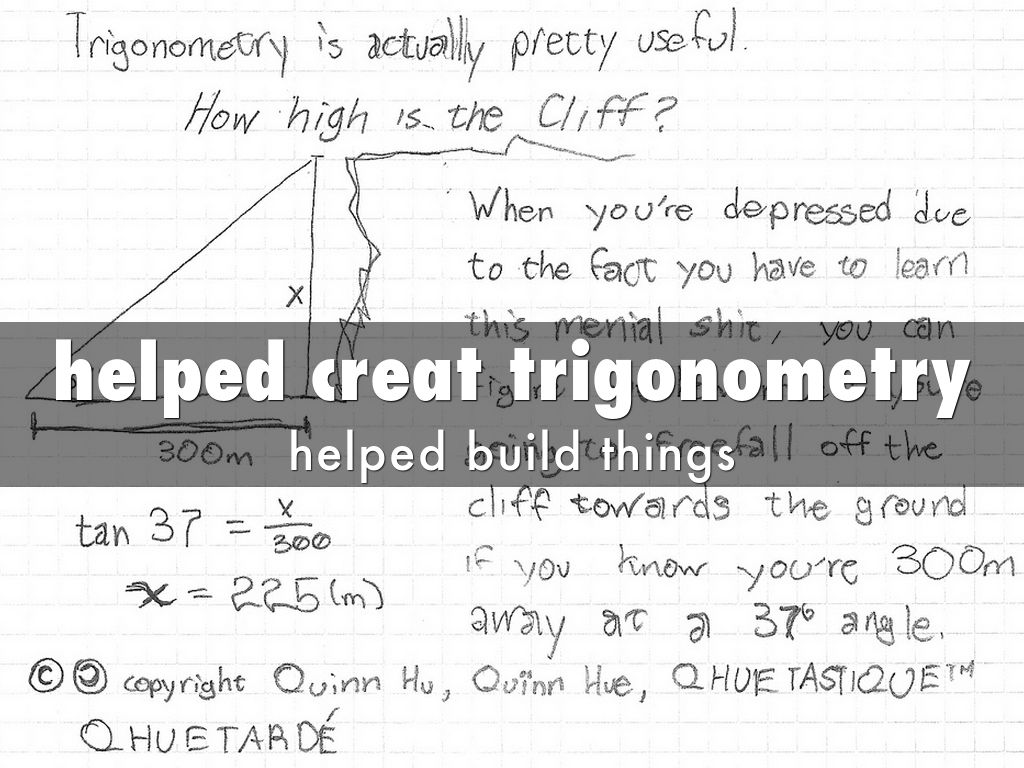 Trigonometry is actually pretty useful.
How high is the Cliff?
When you're depressed due
to the fact you have to learn
this menial shit, you can
x
helped creat trigonometry
300m
helped build things
freefall off the
cliff towards the ground
tan 37 = x/300
if you know you're 300m
x = 225(m)
away at a 37° angle.
© copyright Quinn Hu, Quinn Hue, QHUETASTIQUE™
QHUETARDÉ